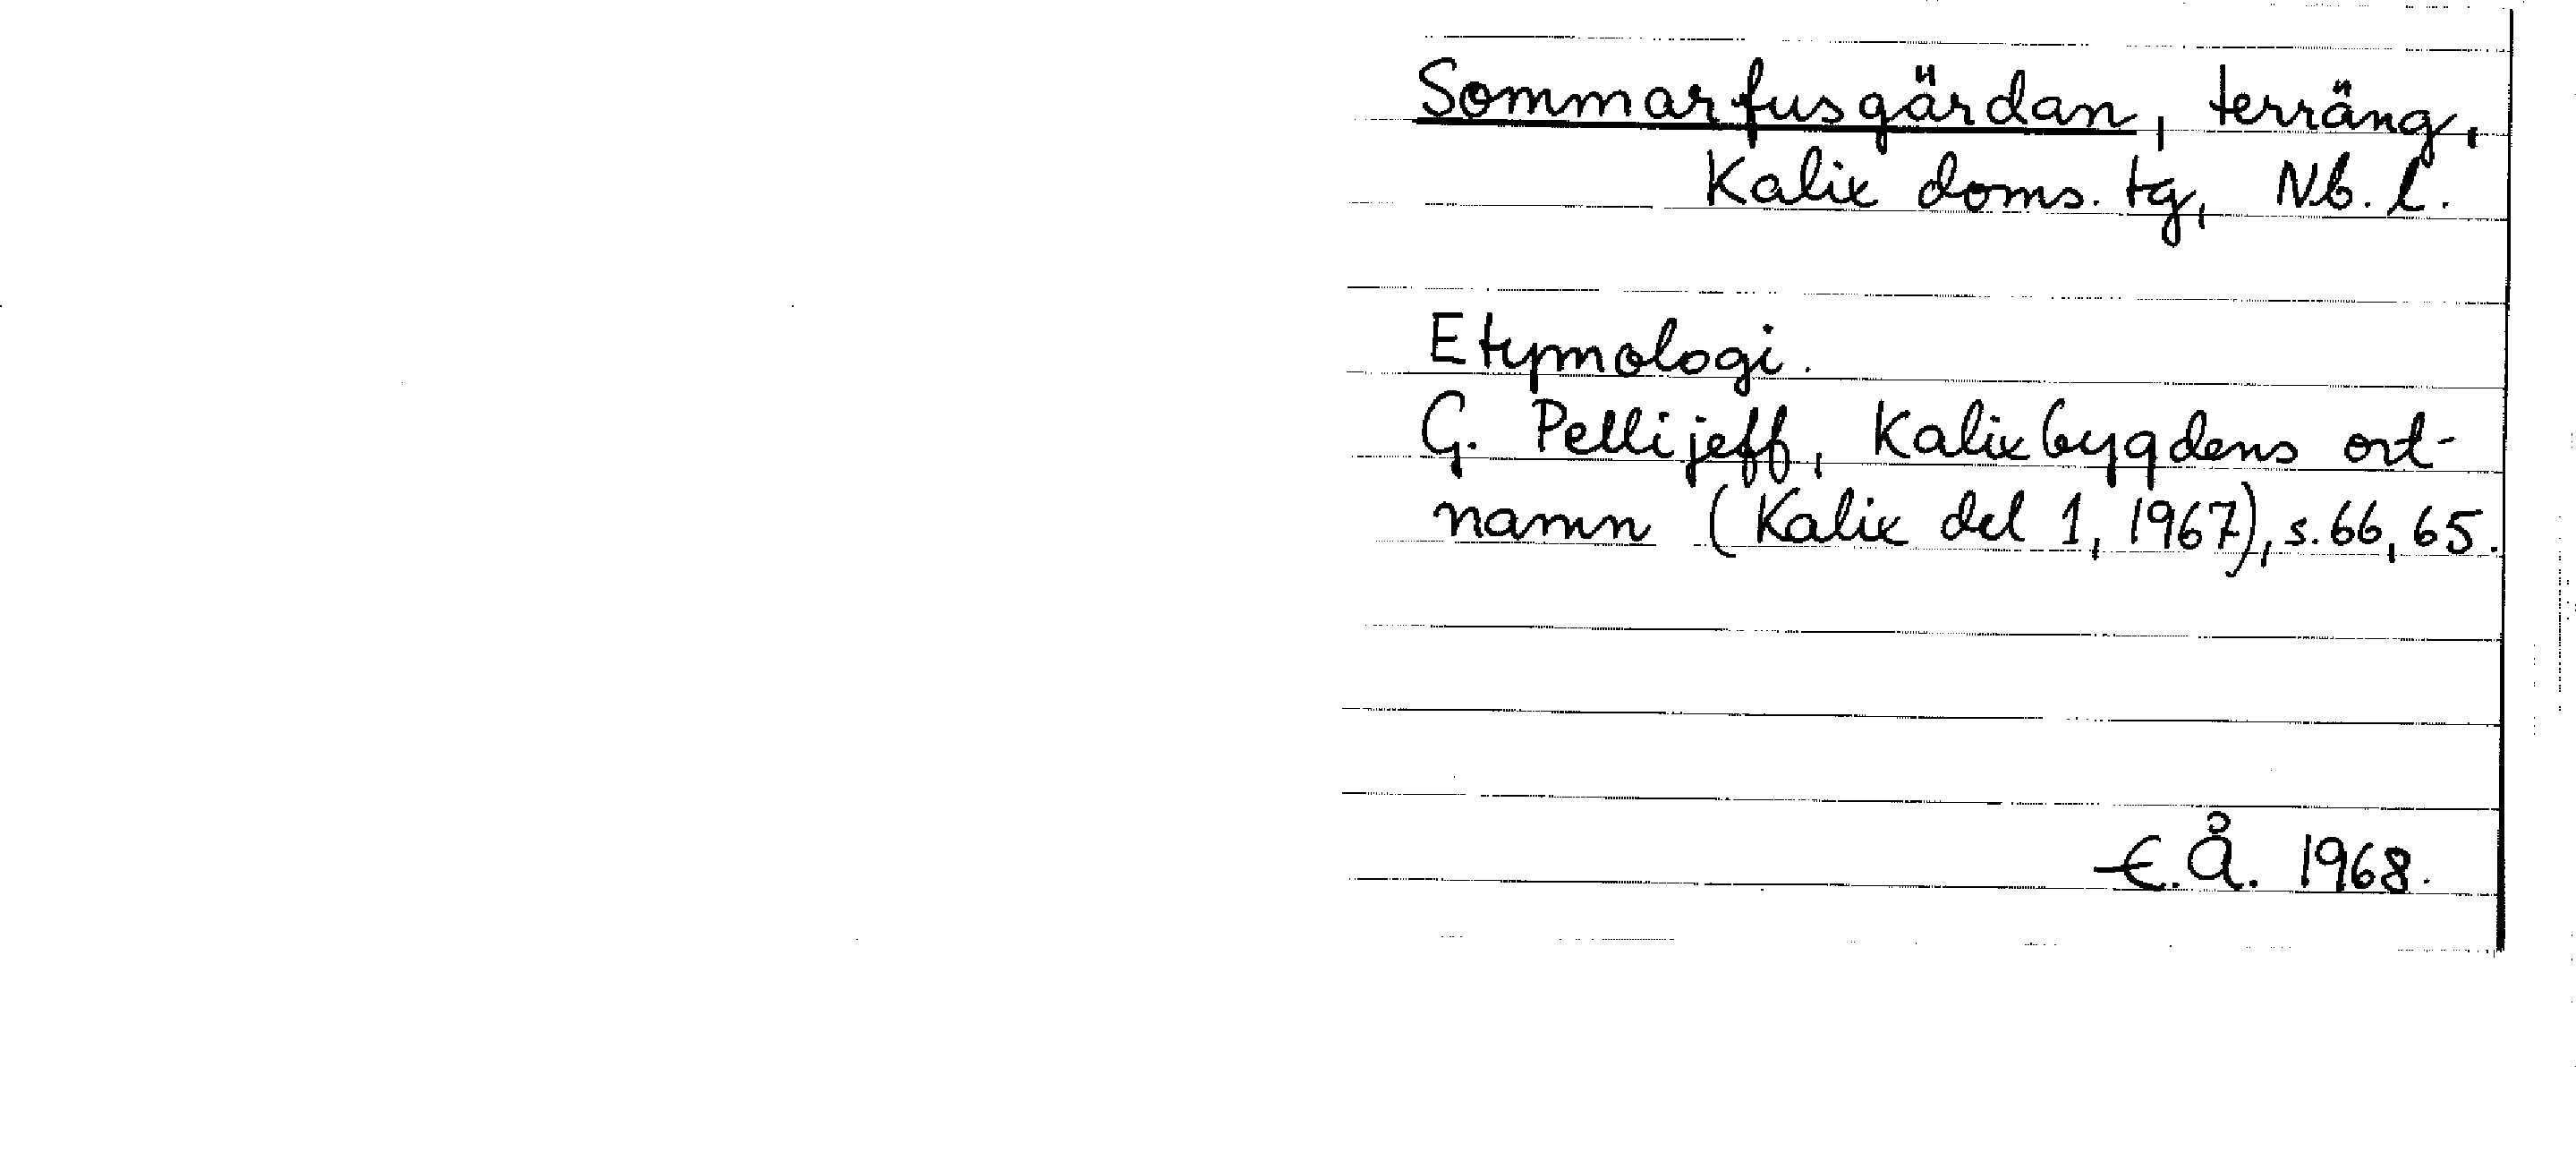 Sommarfusgärdan, terräng,
Kalix doms. tg, Nb. l.
Etymologi.
G. Pellijeff, Kalixbygdens ort-
namn (Kalix del 1, 1967), s. 66, 65.
E.Å. 1968.